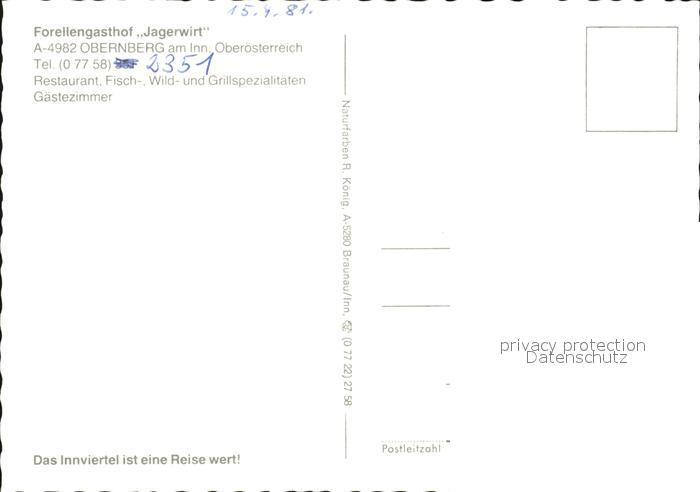 15.4.81.
Forellengasthof „Jagerwirt"
A-4982 OBERNBERG am Inn, Oberösterreich
Tel. (0 77 58) 2351
Restaurant, Fisch-, Wild- und Grillspezialitäten
Gästezimmer
Das Innviertel ist eine Reise wert!
Naturfarben R. König, A-5280 Braunau/Inn, ☎ (0 77 22) 27 58
privacy protection
Datenschutz
Postleitzahl